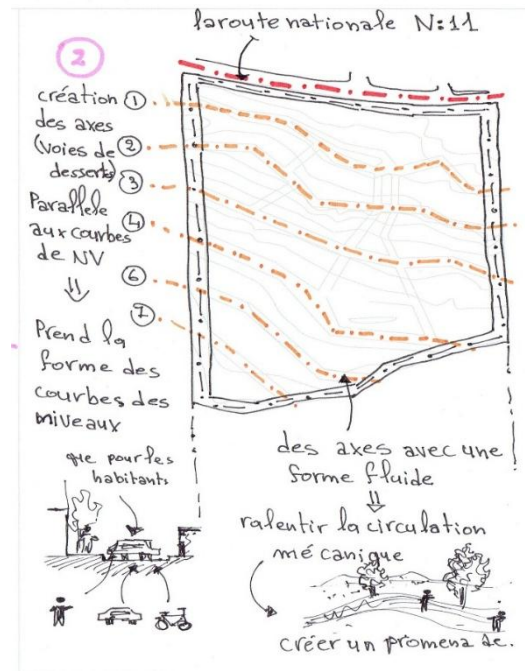 la route nationale N:11
2
création ①
des axes
(voies de ②
dessert) ③
Parallele
aux courbes ④
de NV
⑥
⑦
Prend la
forme des
courbes des
niveaux
que pour les
habitants
des axes avec une
forme fluide
ralentir la circulation
mécanique
créer un promenade.